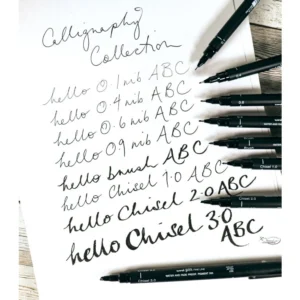 Calligraphy
Collection
hello 0.1 nib ABC
hello 0.4 nib ABC
hello 0.6 nib ABC
hello 09 nib ABC
hello brush ABC
hello Chisel 1.0 ABC
hello Chisel 2.0 ABC
hello Chisel 3.0
ABC